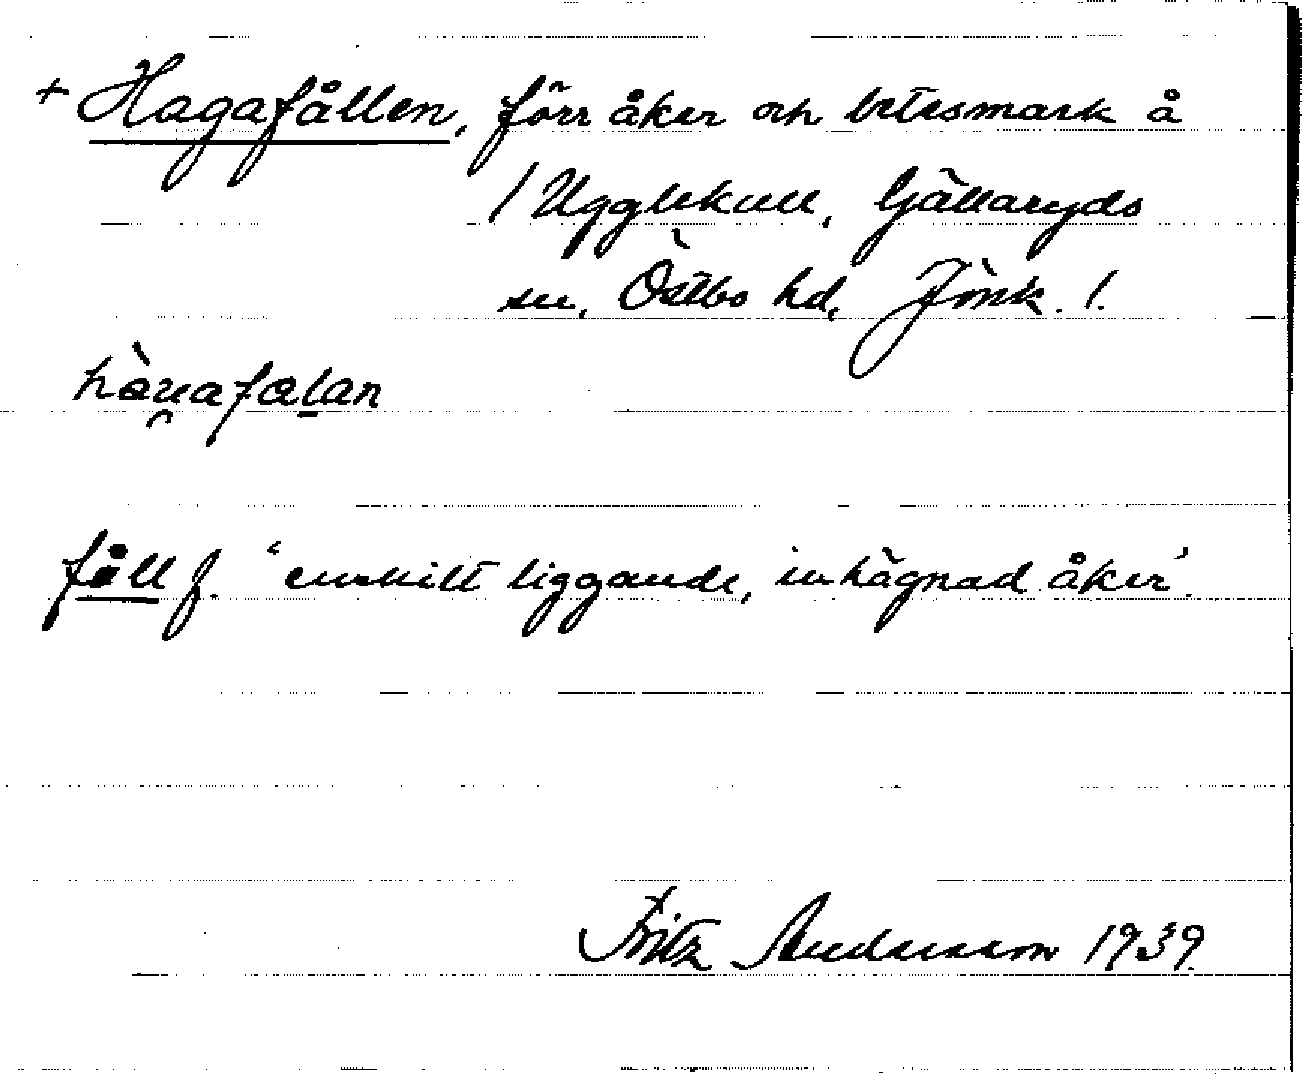 + Hagafållen, förr åker och betesmark å
/ Ugglekull, Gällaryds
sn, Östbo hd, Jönk. l.
fåll f. 'enskilt liggande, inhägnad åker'.
Fritz Andersson 1939.